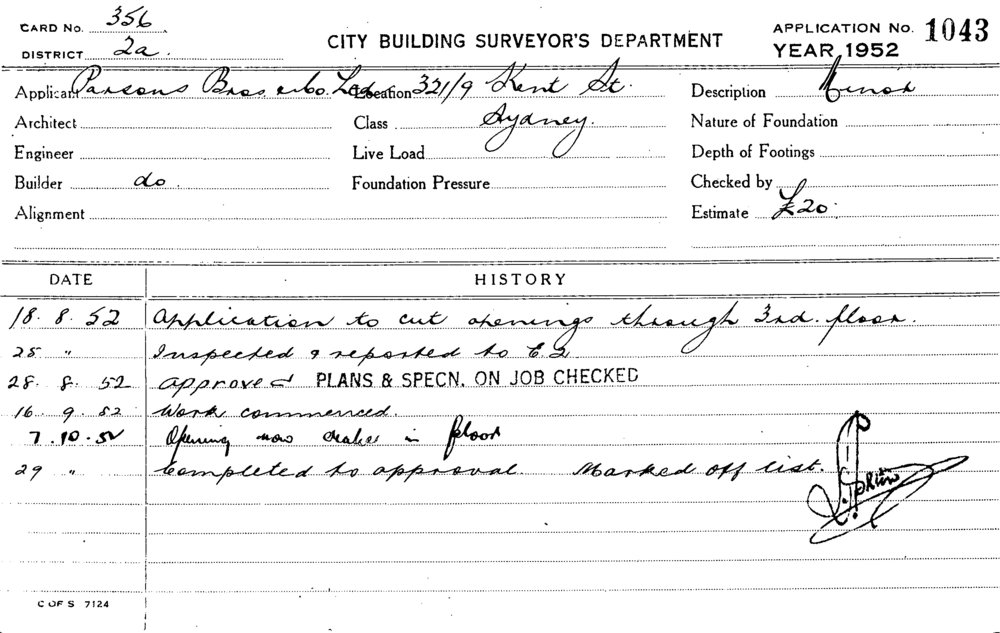 CARD No. 356
DISTRICT 2a.
CITY BUILDING SURVEYOR'S DEPARTMENT
APPLICATION No. 1043
YEAR, 1952
Applicant Parsons Bros & Co. Ltd Location 321/9 Kent St. Description Minor
Architect Class Sydney. Nature of Foundation
Engineer Live Load Depth of Footings
Builder do. Foundation Pressure Checked by
Alignment Estimate £20.
DATE HISTORY
18. 8. 52 Application to cut openings through 3rd. floor.
25 " Inspected & reported to
28. 8. 52 approved PLANS & SPECN. ON JOB CHECKED
16. 9. 52 Work commenced.
7. 10. 52 Opening now in floor
29 " Completed to approval. Marked off list.
C OF S 7124